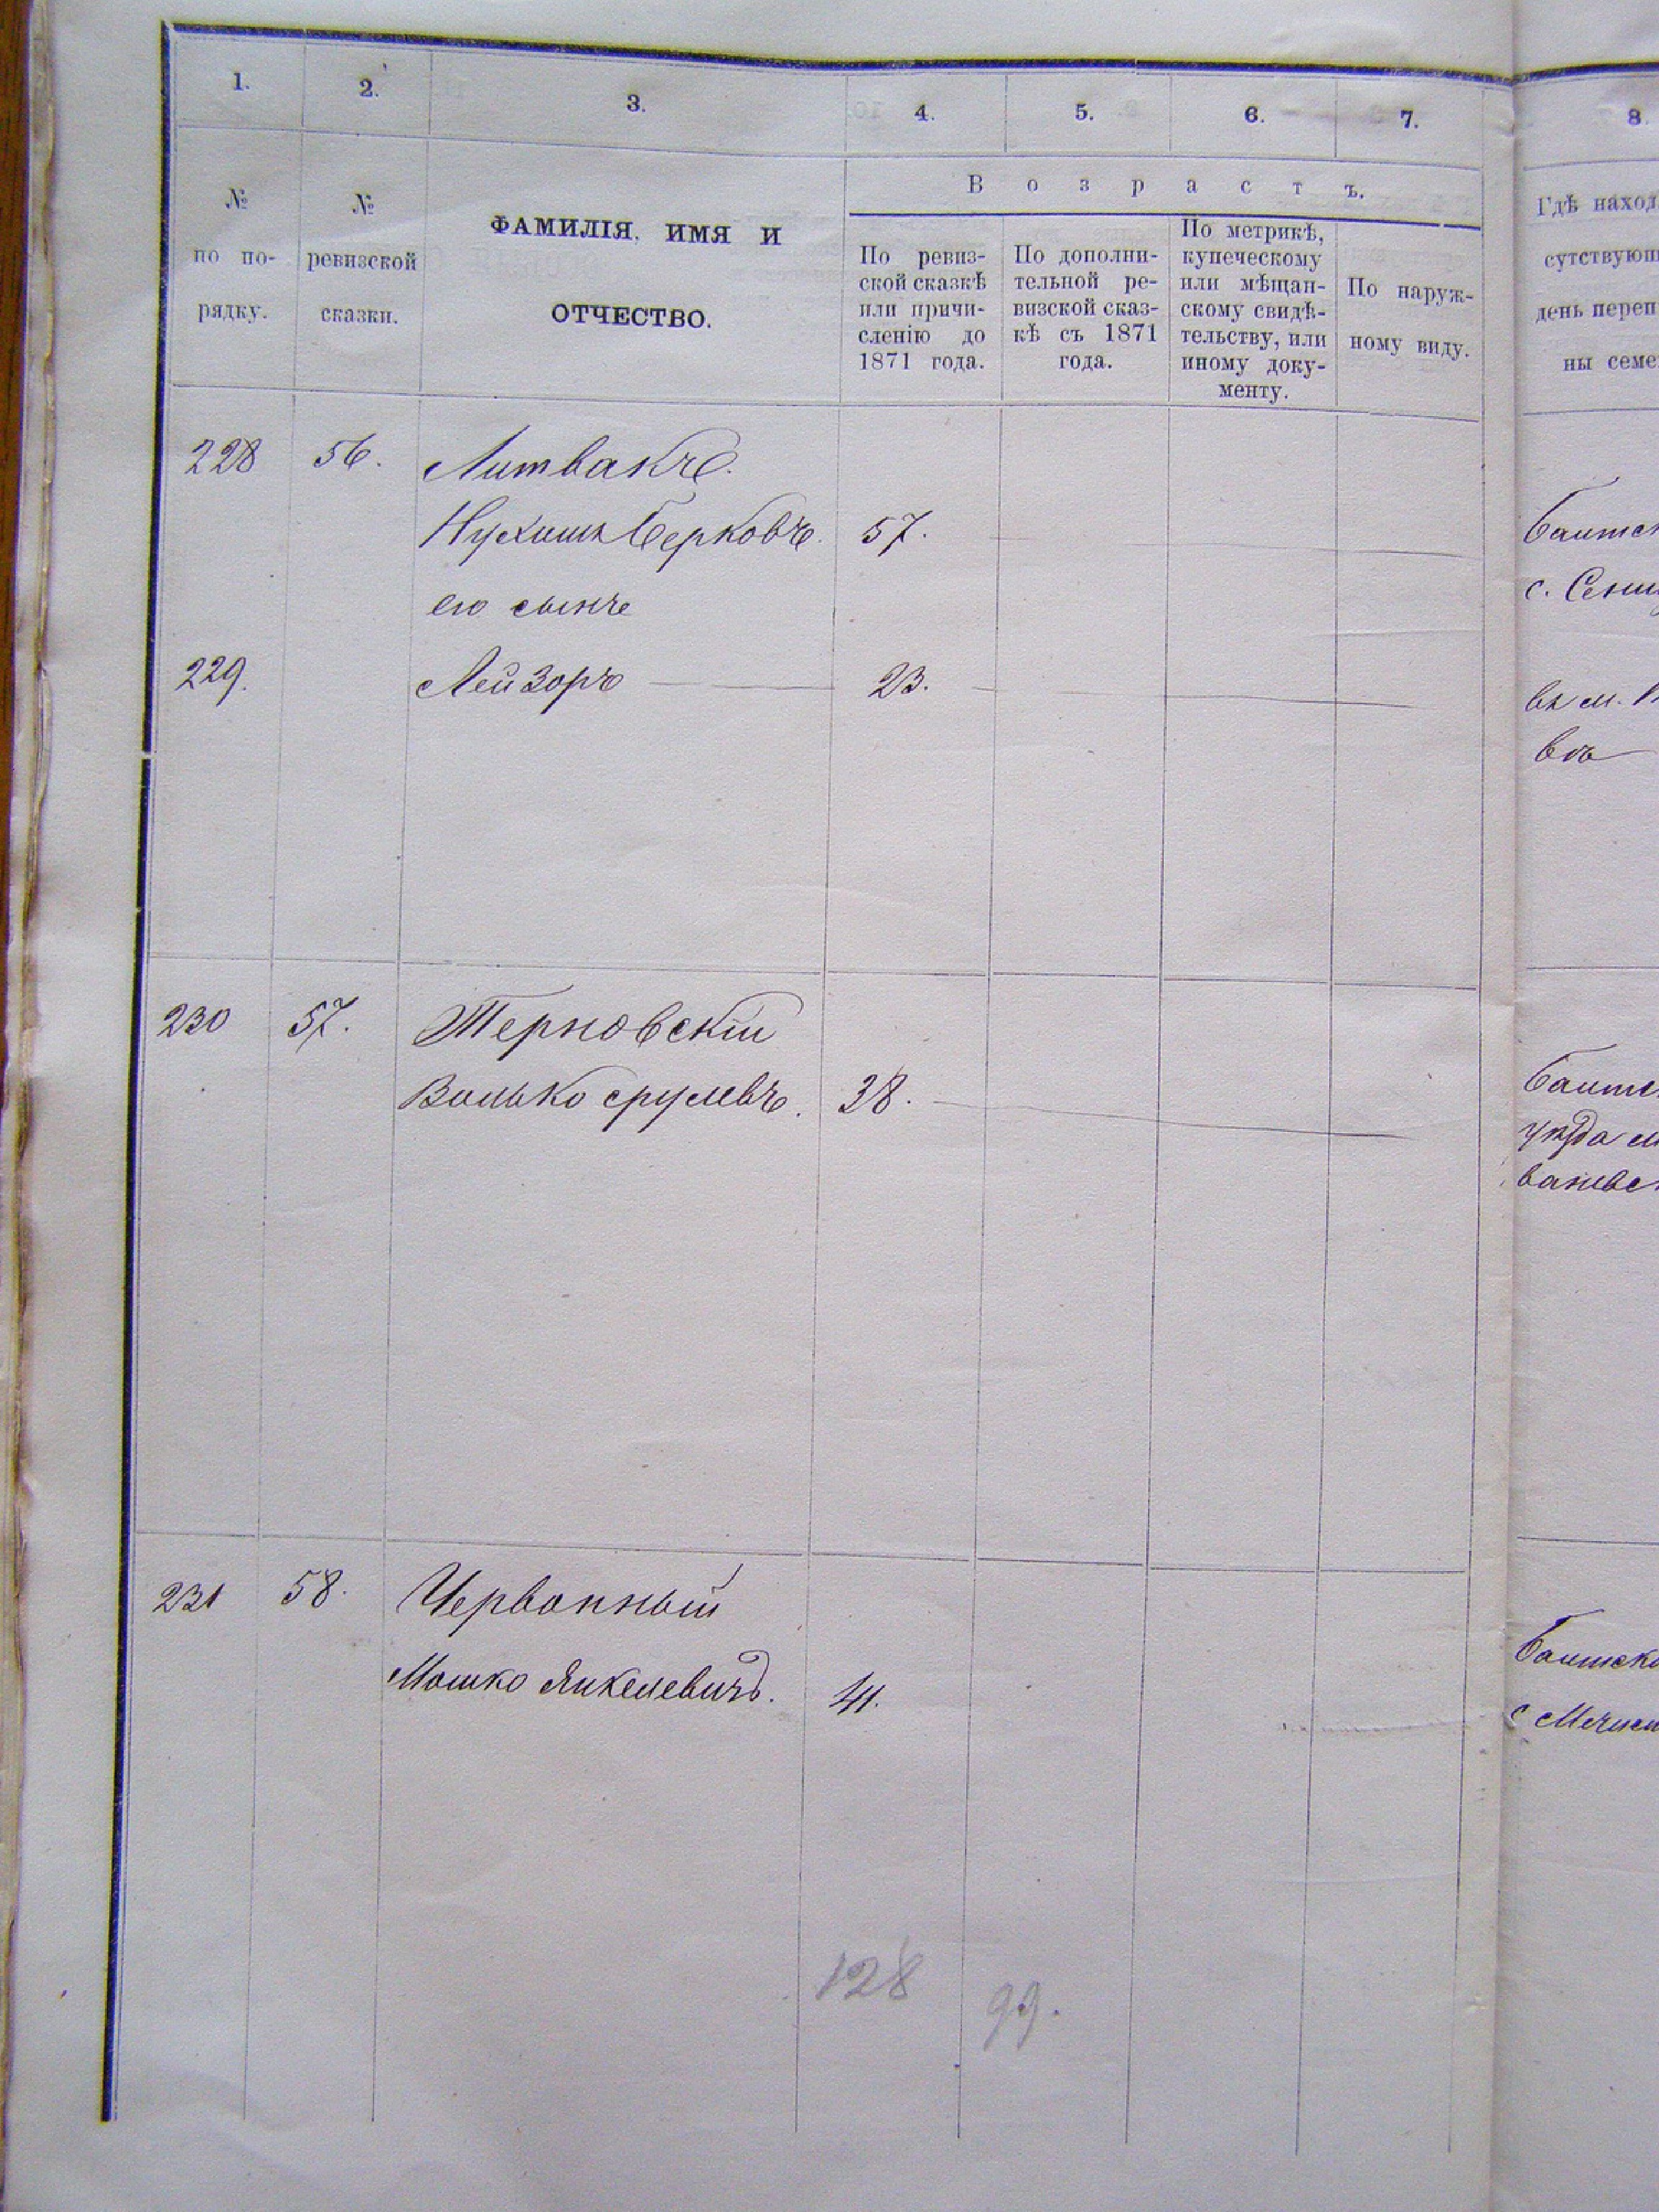 1. 2. 3. 4. 5. 6. 7. 8.
№ по по-рядку.
№ ревизской сказки.
ФАМИЛІЯ, ИМЯ И
ОТЧЕСТВО.
Возрастъ.
По ревиз-
ской сказкѣ
или причи-
сленію до
1871 года.
По дополни-
тельной ре-
визской сказ-
кѣ съ 1871
года.
По метрикѣ,
купеческому
или мѣщан-
скому свидѣ-
тельству, или
иному доку-
менту.
По наруж-
ному виду.
Гдѣ наход
сутствующ
день переп
ны семе
228 56. Литвакъ.
Нухимъ Берковъ. 57.
его сынъ
с.
229. Лейзоръ 23.
въ м.
230 57. Терновскій
Волько Срулевъ. 38.
уѣзда м
231 58. Червонный
Мошко Янкелевичъ. 41.
128
99.